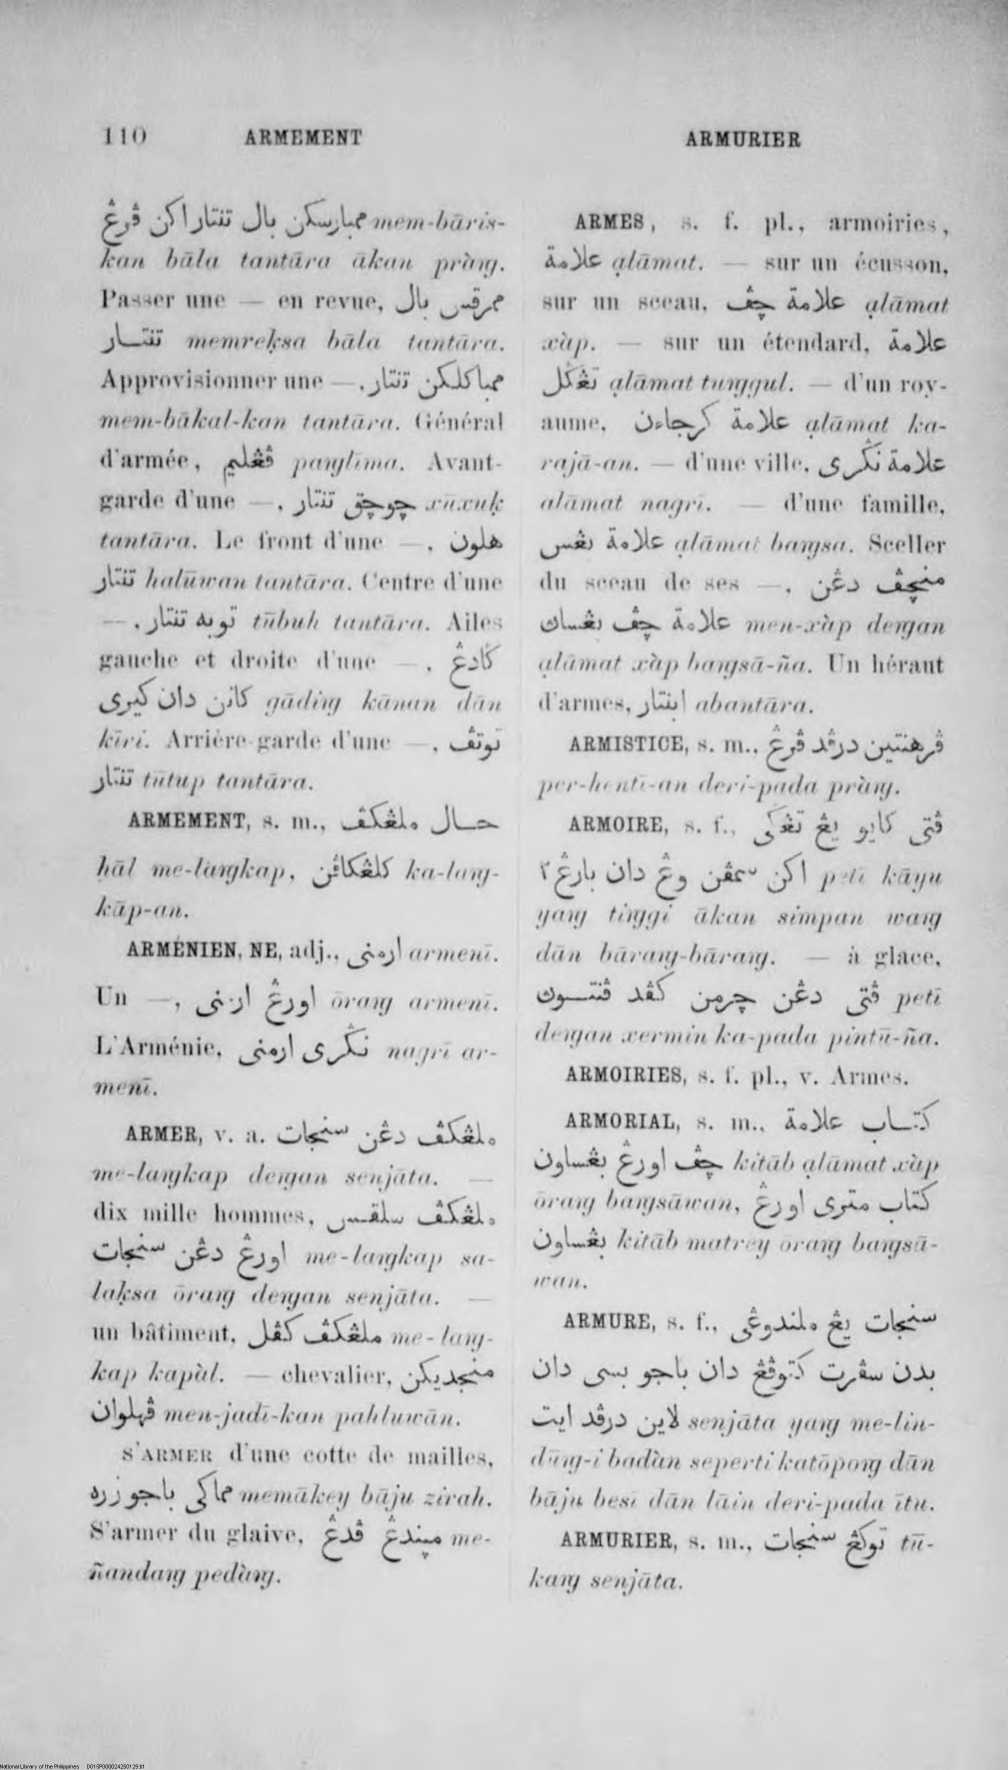 110 ARMEMENT ARMURIER
ممبارسكن بال تنتار اكن ڤرڠ mem-bāris-
kan bāla tantāra ākan pràng.
Passer une — en revue, ممرقس بال
تنتـــار memreḳsa bāla tantāra.
Approvisionner une —, ممباكلكن تنتار
mem-bākal-kan tantāra. Général
d'armée, ڤڠليم panglīma. Avant-
garde d'une —, چوچق تنتار xūxuḳ
tantāra. Le front d'une —, هلون
تنتار halūwan tantāra. Centre d'une
—, توبه تنتار tūbuh tantāra. Ailes
gauche et droite d'une —, ڬادڠ
كانن دان كيرى gāding kānan dān
kīri. Arrière-garde d'une —, توتڤ
تنتار tūtup tantāra.
ARMEMENT, s. m., حــال ملڠكڤ
ḥāl me-langkap, كلڠكاڤن ka-lang-
kāp-an.
ARMÉNIEN, NE, adj., ارمنى armenī.
Un —, اورڠ ارمنى ōrang armenī.
L'Arménie, نڬرى ارمنى nagrī ar-
menī.
ARMER, v. a. ملڠكڤ دڠن سنجات
me-langkap dengan senjāta. —
dix mille hommes, ملڠكڤ سلقس
اورڠ دڠن سنجات me-langkap sa-
laḳsa ōrang dengan senjāta. —
un bâtiment, ملڠكڤ كڤل me-lang-
kap kapàl. — chevalier, منجديكن
ڤهلوان men-jadī-kan pahluwān.
S'ARMER d'une cotte de mailles,
مماكى باجو زره memākey bāju zirah.
S'armer du glaive, مپندڠ ڤدڠ me-
ñandang pedàng.
ARMES, s. f. pl., armoiries,
علامة ạlāmat. — sur un écusson,
sur un sceau, علامة چڤ ạlāmat
xàp. — sur un étendard, علامة
تڠڬل ạlāmat tunggul. — d'un roy-
aume, علامة كرجاءن ạlāmat ka-
rajā-an. — d'une ville, علامة نڬرى
ạlāmat nagrī. — d'une famille,
علامة بڠس ạlāmat bangsa. Sceller
du sceau de ses —, منچڤ دڠن
علامة چڤ بڠساڽ men-xàp dengan
ạlāmat xàp bangsā-ña. Un héraut
d'armes, ابنتار abantāra.
ARMISTICE, s. m., ڤرهنتين درڤد ڤرڠ
per-hentī-an deri-pada pràng.
ARMOIRE, s. f., ڤتى كايو يڠ تڠڬى
اكن سمڤن وڠ دان بارڠ٢ petī kāyu
yang tinggi ākan simpan wang
dān bārang-bārang. — à glace,
ڤتى دڠن چرمن كڤد ڤنتــوڽ petī
dengan xermin ka-pada pintū-ña.
ARMOIRIES, s. f. pl., v. Armes.
ARMORIAL, s. m., كتــاب علامة
چڤ اورڠ بڠساون kitāb ạlāmat xàp
ōrang bangsāwan, كتاب مترى اورڠ
بڠساون kitāb matrey ōrang bangsā-
wan.
ARMURE, s. f., سنجات يڠ ملندوڠى
بدن سڤرت كتوڤڠ دان باجو بسى دان
لاين درڤد ايت senjāta yang me-lin-
dūng-i badàn seperti katōpong dān
bāju besī dān lāin deri-pada ītu.
ARMURIER, s. m., توكڠ سنجات tū-
kang senjāta.
National Library of the Philippines